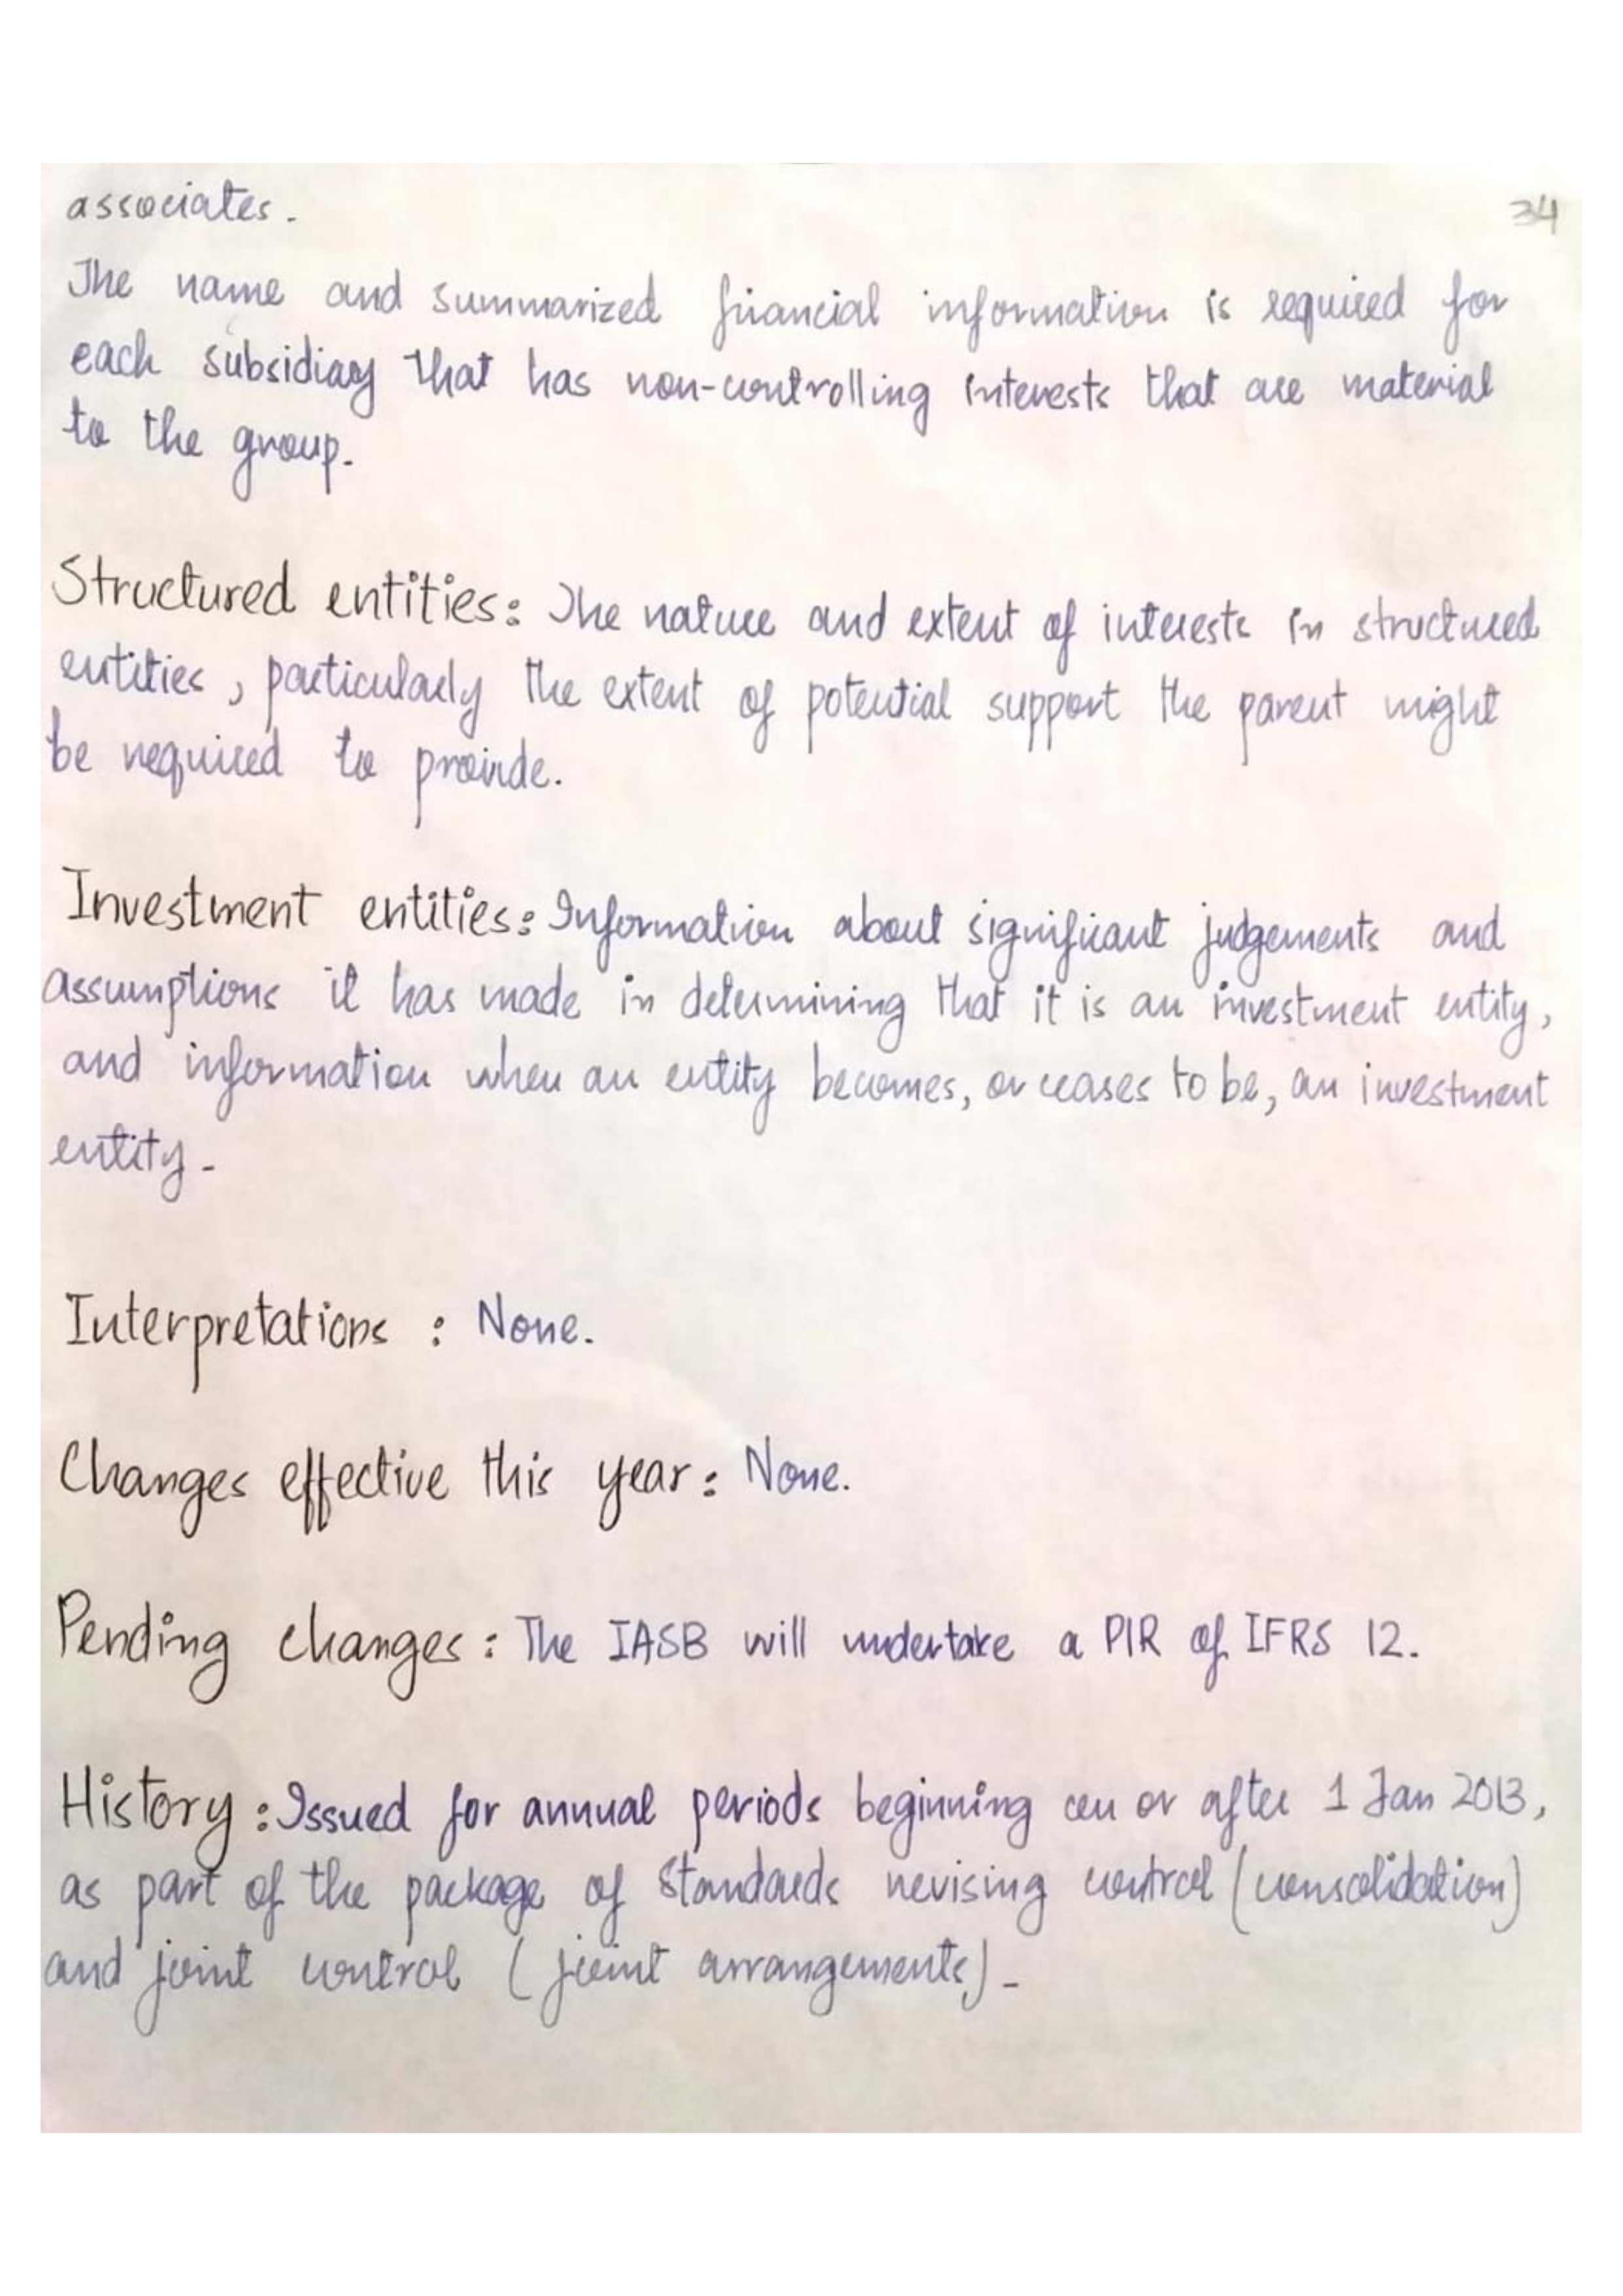 associates.
34
The name and summarized financial information is required for
each subsidiary that has non-controlling interests that are material
to the group.
Structured entities: The nature and extent of interests in structured
entities, particularly the extent of potential support the parent might
be required to provide.
Investment entities: Information about significant judgements and
assumptions it has made in determining that it is an investment entity,
and information when an entity becomes, or ceases to be, an investment
entity.
Interpretations : None.
Changes effective this year: None.
Pending changes: The IASB will undertake a PIR of IFRS 12.
History: Issued for annual periods beginning on or after 1 Jan 2013,
as part of the package of Standards revising control (consolidation)
and joint control (joint arrangements).